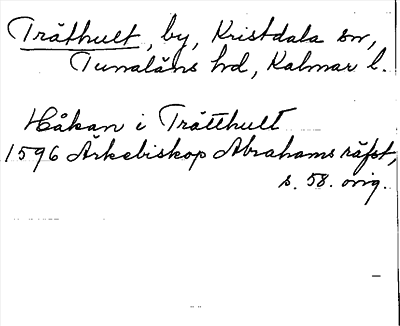 Tråthult, by, Kristdala sn,
Tunaläns hd, Kalmar l.
Håkan i Tråtthult
1596 Ärkebiskop Abrahams räfst,
s. 58. orig.